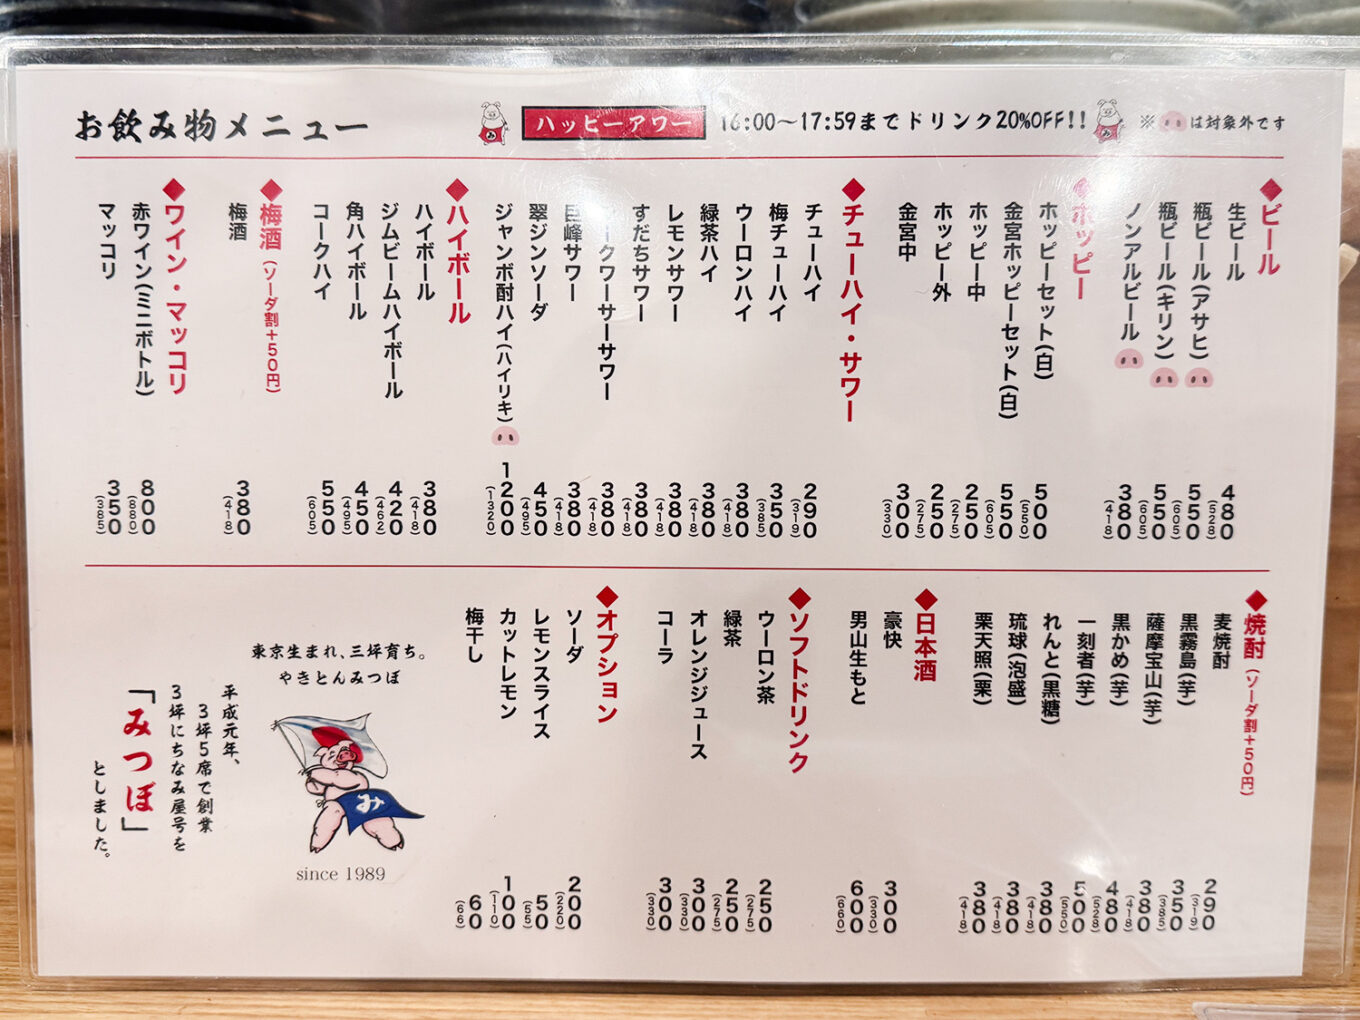 お飲み物メニュー
ハッピーアワー
16:00〜17:59までドリンク20%OFF!!
※は対象外です
◆ビール
生ビール 480 (528)
瓶ビール(アサヒ) 550 (605)
瓶ビール(キリン) 550 (605)
ノンアルビール 380 (418)
◆ホッピー
ホッピーセット(白) 500 (550)
金宮ホッピーセット(白) 550 (605)
ホッピー中 250 (275)
ホッピー外 250 (275)
金宮中 300 (330)
◆チューハイ・サワー
チューハイ 290 (319)
梅チューハイ 350 (385)
ウーロンハイ 380 (418)
緑茶ハイ 380 (418)
レモンサワー 380 (418)
すだちサワー 380 (418)
ークワーサーサワー 380 (418)
巨峰サワー 380 (418)
翠ジンソーダ 450 (495)
ジャンボ酎ハイ(ハイリキ) 1200 (1320)
◆ハイボール
ハイボール 380 (418)
ジムビームハイボール 420 (462)
角ハイボール 450 (495)
コークハイ 550 (605)
◆梅酒(ソーダ割+50円)
梅酒 380 (418)
◆ワイン・マッコリ
赤ワイン(ミニボトル) 800 (880)
マッコリ 350 (385)
◆焼酎(ソーダ割+50円)
麦焼酎 290 (319)
黒霧島(芋) 350 (385)
薩摩宝山(芋) 380 (418)
黒かめ(芋) 480 (528)
一刻者(芋) 500 (550)
れんと(黒糖) 380 (418)
琉球(泡盛) 380 (418)
栗天照(栗) 380 (418)
◆日本酒
豪快 300 (330)
男山生もと 600 (660)
◆ソフトドリンク
ウーロン茶 250 (275)
緑茶 250 (275)
オレンジジュース 300 (330)
コーラ 300 (330)
◆オプション
ソーダ 200 (220)
レモンスライス 50 (55)
カットレモン 100 (110)
梅干し 60 (66)
東京生まれ、三坪育ち。
やきとんみつぼ
み
since 1989
平成元年、
3坪5席で創業
3坪にちなみ屋号を
「みつぼ」
としました。